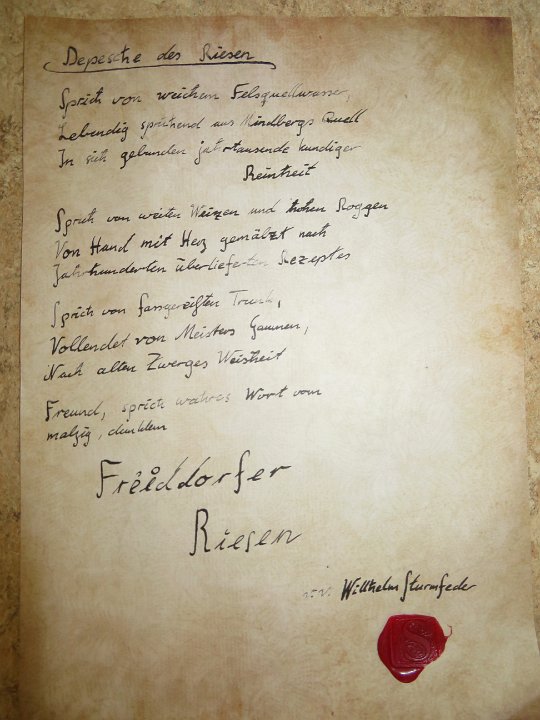 Depesche des Riesen
Sprich von weichem Felsquellwasser,
Lebendig sprühend aus Mindbergs Quell
In sich gebunden jahrtausende kundiger
Reinheit
Sprich von weiten Weizen und hohen Roggen
Von Hand mit Herz gemälzt nach
Jahrhunderten überlieferten Rezeptes
Sprich von fassgereiften Trunk,
Vollendet von Meisters Gaumen,
Nach alten Zwerges Weisheit
Freund, sprich wahres Wort vom
malzig, dunklem
Freiddorfer
Riesen
Willhelm Sturmfeder
S